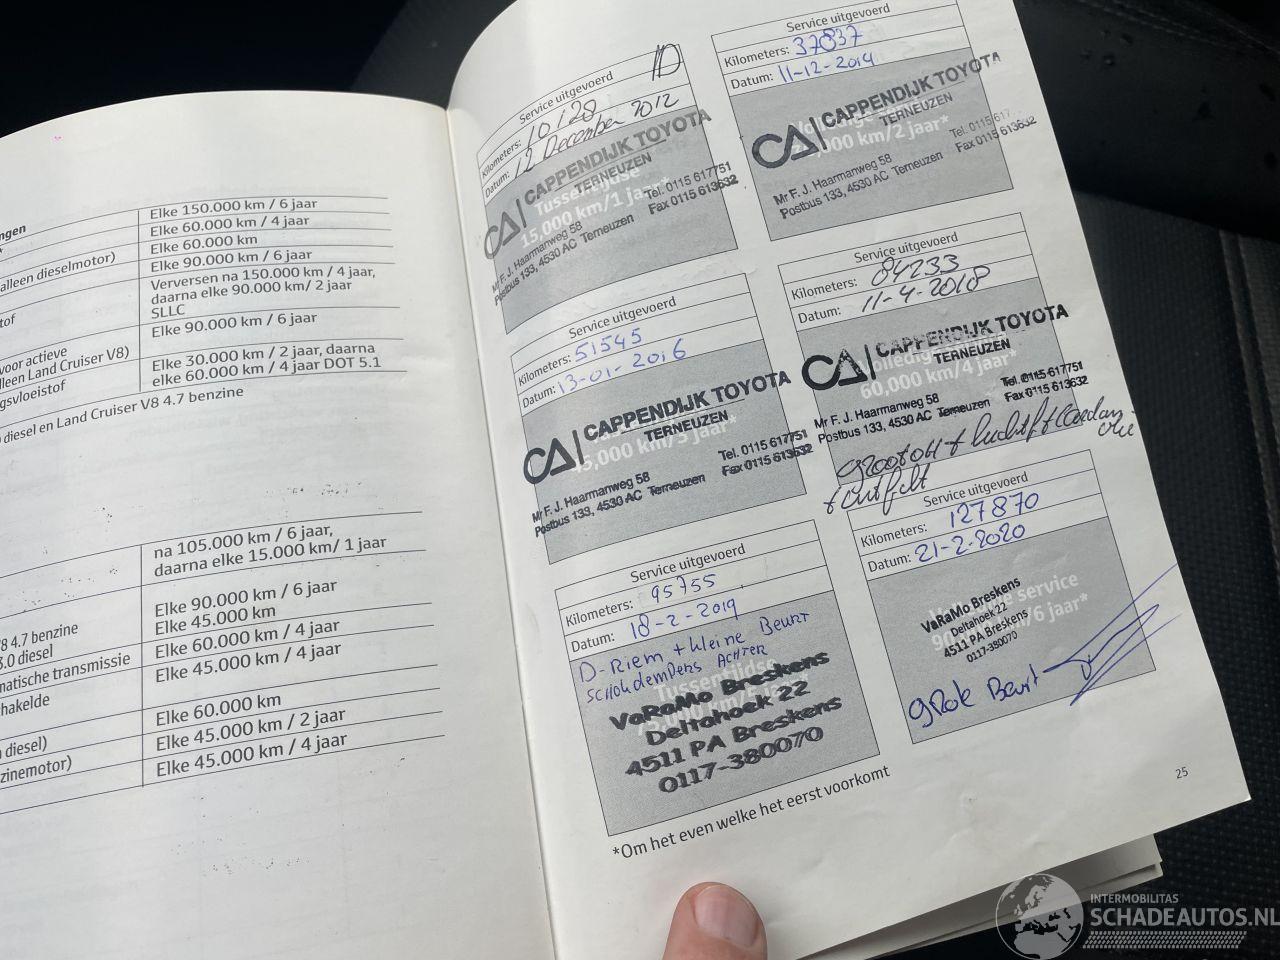 ngen
Elke 150.000 km / 6 jaar
Elke 60.000 km / 4 jaar
alleen dieselmotor)
Elke 60.000 km
Elke 90.000 km / 6 jaar
tof
Verversen na 150.000 km / 4 jaar,
daarna elke 90.000 km/ 2 jaar
SLLC
voor actieve
lleen Land Cruiser V8)
Elke 90.000 km / 6 jaar
gsvloeistof
Elke 30.000 km / 2 jaar, daarna
elke 60.000 km / 4 jaar DOT 5.1
diesel en Land Cruiser V8 4.7 benzine
na 105.000 km / 6 jaar,
daarna elke 15.000 km/ 1 jaar
V8 4.7 benzine
3.0 diesel
Elke 90.000 km / 6 jaar
Elke 45.000 km
matische transmissie
Elke 60.000 km / 4 jaar
hakelde
Elke 45.000 km / 4 jaar
Elke 60.000 km
diesel)
Elke 45.000 km / 2 jaar
zinemotor)
Elke 45.000 km / 4 jaar
Service uitgevoerd
Kilometers: 10128
Datum: 12 December 2012
CA CAPPENDIJK TOYOTA
TERNEUZEN
Tussentijdse
15.000 km/1 jaar*
Tel. 0115 617751
Fax 0115 613632
Mr F. J. Haarmanweg 58
Postbus 133, 4530 AC Terneuzen
Service uitgevoerd
Kilometers: 37837
Datum: 11-12-2014
CA CAPPENDIJK TOYOTA
TERNEUZEN
km/2 jaar*
Tel. 0115 617
Fax 0115 613632
Mr F. J. Haarmanweg 58
Postbus 133, 4530 AC Terneuzen
Service uitgevoerd
Kilometers: 51545
Datum: 13-01-2016
CA CAPPENDIJK TOYOTA
TERNEUZEN
Tel. 0115 617751
Fax 0115 613632
Mr F. J. Haarmanweg 58
Postbus 133, 4530 AC Terneuzen
Service uitgevoerd
Kilometers: 84233
Datum: 11-4-2018
CA CAPPENDIJK TOYOTA
TERNEUZEN
60.000 km/4 jaar*
Tel. 0115 617751
Fax 0115 613632
Mr F. J. Haarmanweg 58
Postbus 133, 4530 AC Terneuzen
Service uitgevoerd
Kilometers: 95755
Datum: 18-2-2019
D-Riem + kleine Beurt
SCHOKdempers ACHTER
Tussentijdse
VaRaMo Breskens
Deltahoek 22
4511 PA Breskens
0117-380070
Service uitgevoerd
Kilometers: 127870
Datum: 21-2-2020
service
VaRaMo Breskens
Deltahoek 22
4511 PA Breskens
0117-380070
km/6 jaar*
gRote Beurt
*Om het even welke het eerst voorkomt
25
INTERMOBILITAS
SCHADEAUTOS.NL